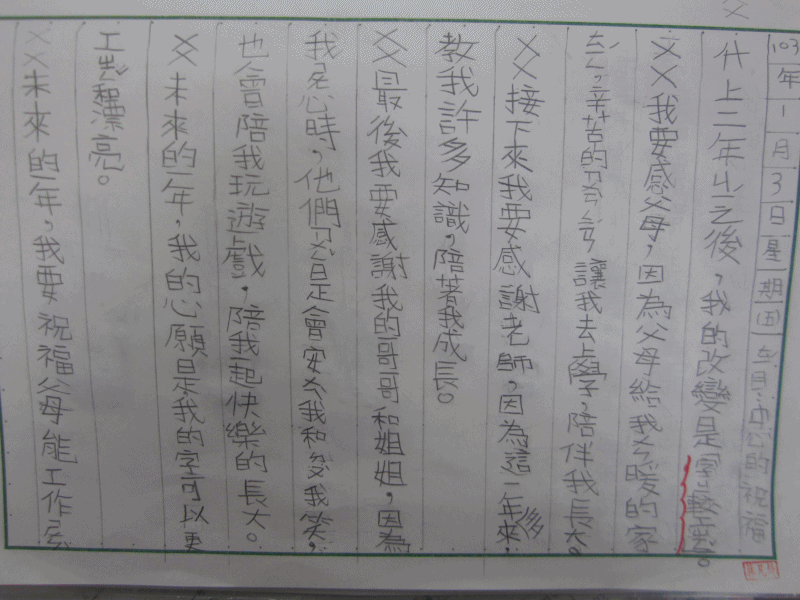 103年1月3日星期(五)ㄓㄣ ㄓㄥˋ的祝福
升上三年ㄐㄧˊ之後，我的改變是字較
我要感父母，因為父母給我ㄨㄣ暖的家
辛苦的 讓我去上學，陪伴我長大。
接下來我要感謝老師，因為這一年來，
教我許多知識，陪著我成長。
最後我要感謝我的哥哥和姐姐，因為
我 時，他們 是會安 我和 我笑，
也會陪我玩遊戲，陪我一起快樂的長大。
未來的一年，我的心願是我的字可以更
工整和漂亮。
未來的一年，我要祝福父母能工作